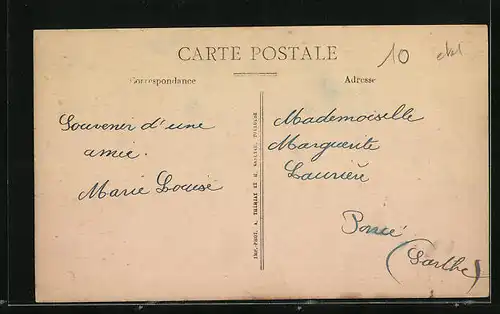 CARTE POSTALE
10
Correspondance
Adresse
Souvenir d'une
amie.
Marie Louise
Mademoiselle
Marguerite
Laurière
Poncé
(Sarthe)